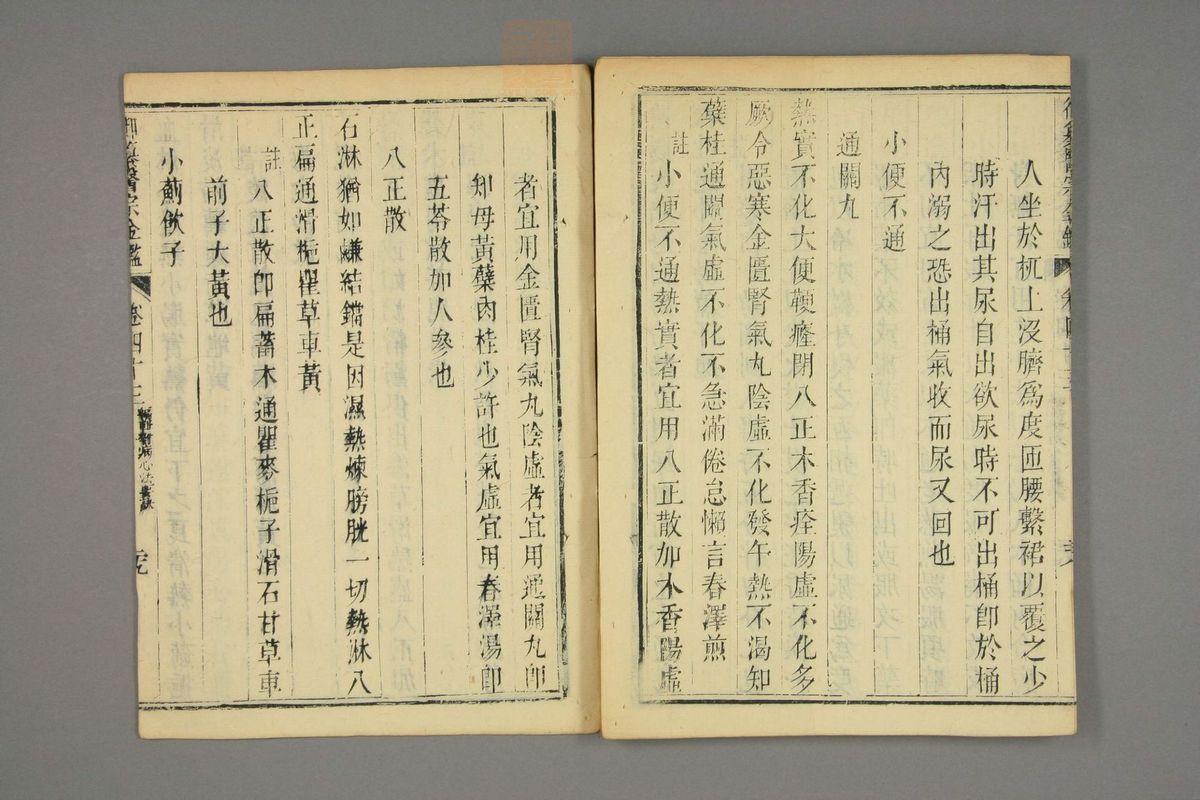 人坐於杌上沒臍爲度匝腰繫裙以覆之少
時汗出其尿自出欲尿時不可出桶卽於桶
內溺之恐出桶氣收而尿又回也
小便不通
通關丸
熱實不化大便鞕癃閉八正木香痊陽虛不化多
厥冷惡寒金匱腎氣丸陰虛不化發午熱不渴知
蘗桂通關氣虛不化不急滿倦怠懶言春澤煎
註小便不通熱實者宜用八正散加木香陽虛
者宜用金匱腎氣丸陰虛者宜用通關丸卽
知母黃蘗肉桂少許也氣虛宜用春澤湯卽
五苓散加人參也
八正散
石淋猶如𥖎結鐺是因濕熱煉膀胱一切熱淋八
正扁通滑梔瞿草車黃
註八正散卽扁蓄木通瞿麥梔子滑石甘草車
前子大黃也
小薊飲子
御纂醫宗金鑑 卷四十三